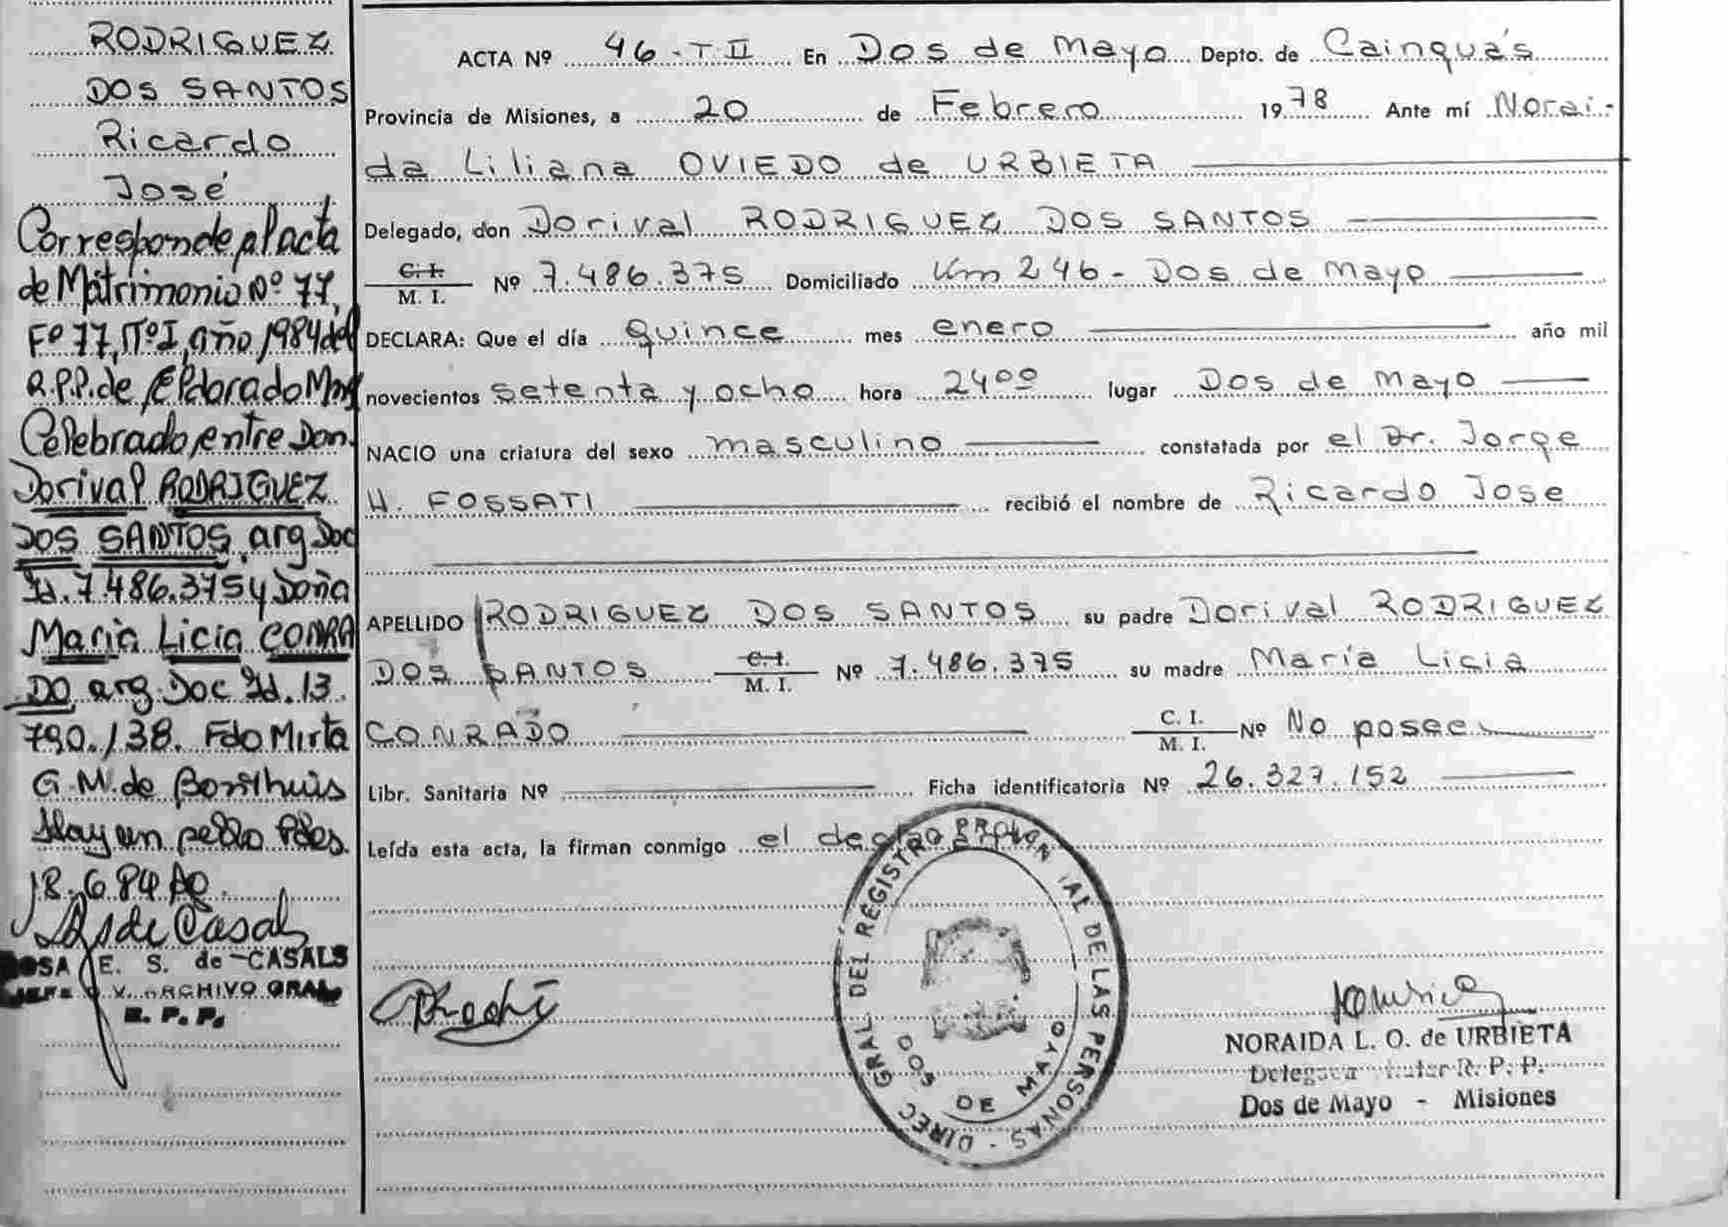 RODRIGUEZ
DOS SANTOS
Ricardo
José
Corresponde al acta
de Matrimonio Nº 77,
Fº 77, TºI, año 1984 del
R.P.P. de Eldorado Mnes
Celebrado entre Don
Dorival RODRIGUEZ
DOS SANTOS, arg Doc
Id. 7.486.375 y Doña
Maria Licia CONRA
DO arg. Doc Id. 13.
790.138. Fdo Mirta
G. M. de
Hay un sello Pdas.
18.6.84
E. S. de CASALS
ARCHIVO GRAL
R. P. P.
ACTA Nº 46-T II En Dos de Mayo Depto. de Cainguás
Provincia de Misiones, a 20 de Febrero 1978 Ante mí Norai-
da Liliana OVIEDO de URBIETA
Delegado, don Dorival RODRIGUEZ DOS SANTOS
C. I. / M. I. Nº 7.486.375 Domiciliado Km 246 - Dos de Mayo
DECLARA: Que el día quince mes enero año mil
novecientos setenta y ocho hora 24⁰⁰ lugar Dos de Mayo
NACIO una criatura del sexo masculino constatada por el Dr. Jorge
H. FOSSATI recibió el nombre de Ricardo Jose
APELLIDO RODRIGUEZ DOS SANTOS su padre Dorival RODRIGUEZ
DOS SANTOS C. I. / M. I. Nº 7.486.375 su madre María Licia
CONRADO C. I. / M. I. Nº No posee
Libr. Sanitaria Nº Ficha identificatoria Nº 26.327.152
Leída esta acta, la firman conmigo el
DIREC GRAL DEL REGISTRO DE LAS PERSONAS -
DOS DE MAYO
NORAIDA L. O. de URBIETA
R. P. P.
Dos de Mayo - Misiones